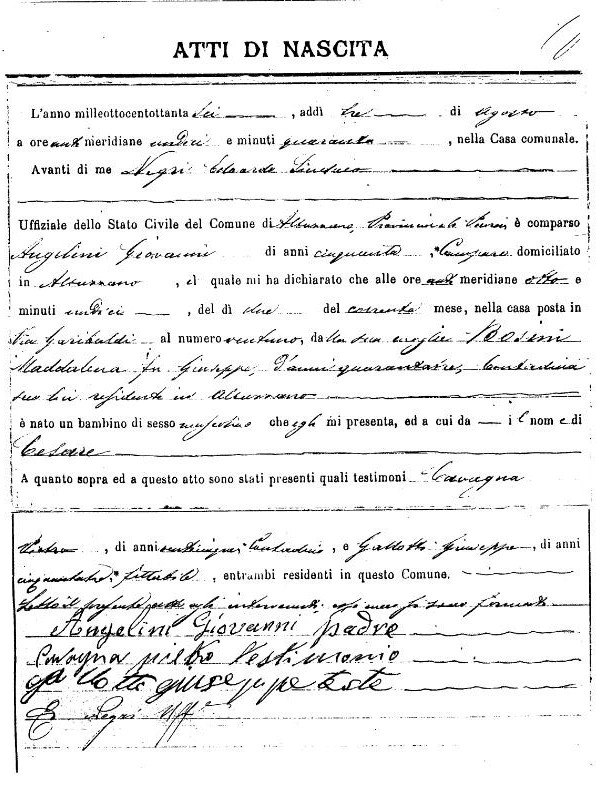 ATTI DI NASCITA
L'anno milleottocentottanta sei , addì tre di agosto
a ore anti meridiane undici e minuti quaranta , nella Casa comunale.
Avanti di me Negri Edoardo Sindaco
Uffiziale dello Stato Civile del Comune di Albuzzano, Provincia di Pavia è comparso
Angelini Giovanni di anni cinquanta , Campare domiciliato
in Albuzzano , il quale mi ha dichiarato che alle ore anti meridiane otto e
minuti undici , del dì due del corrente mese, nella casa posta in
Via Garibaldi al numero ventuno, dalla sua moglie Bosini
Maddalena fu Giuseppe, d'anni quarantatre, Contadina
seco lui residente in Albuzzano
è nato un bambino di sesso mascolino che egli mi presenta, ed a cui da il nome di
Cesare
A quanto sopra ed a questo atto sono stati presenti quali testimoni Cavagna
Pietro , di anni venticinque Contadino , e Gallotti Giuseppe , di anni
cinquantatre fittabile , entrambi residenti in questo Comune.
Letto il presente atto agli intervenuti si sono firmati
Angelini Giovanni padre
Cavagna pietro testimonio
gallotti giuseppe teste
E Negri Uff.e